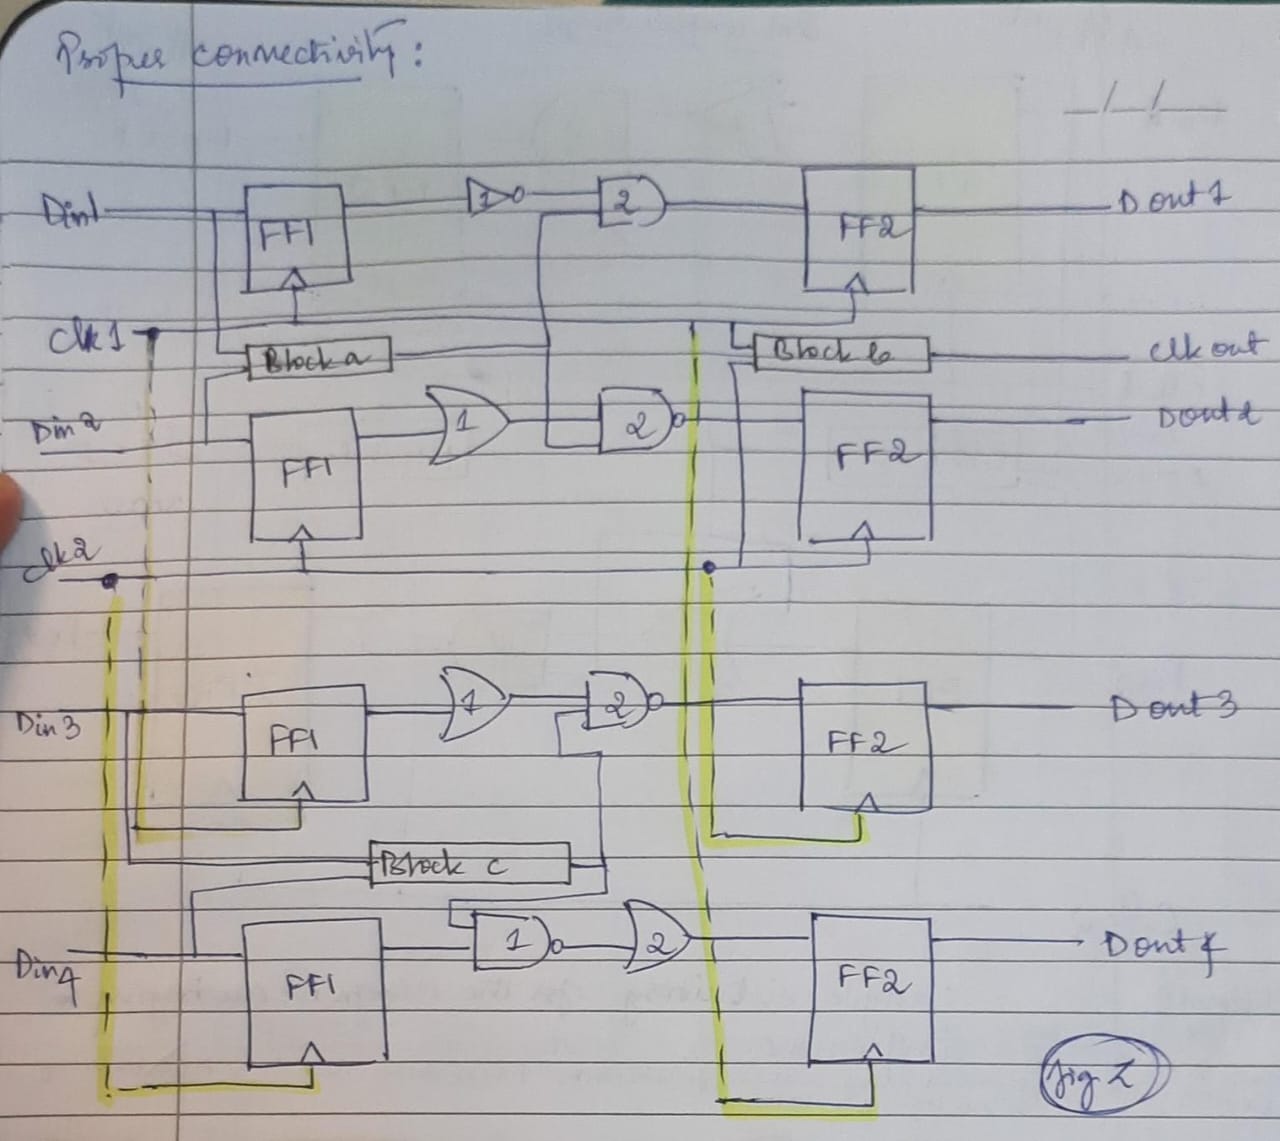 Proper connectivity:
_/_/_
Din1 FF1 1 2 FF2 Dout1
Clk1 Block a Block b Clk out
Din2 FF1 1 2 FF2 Dout2
Clk2
Din3 FF1 1 2 FF2 Dout3
Block c
Din4 FF1 1 2 FF2 Dout4